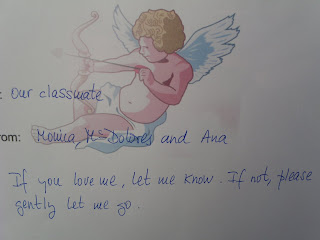 : Our classmate
rom: Monica M Dolores and Ana
If you love me, let me know. If not, please
gently let me go.